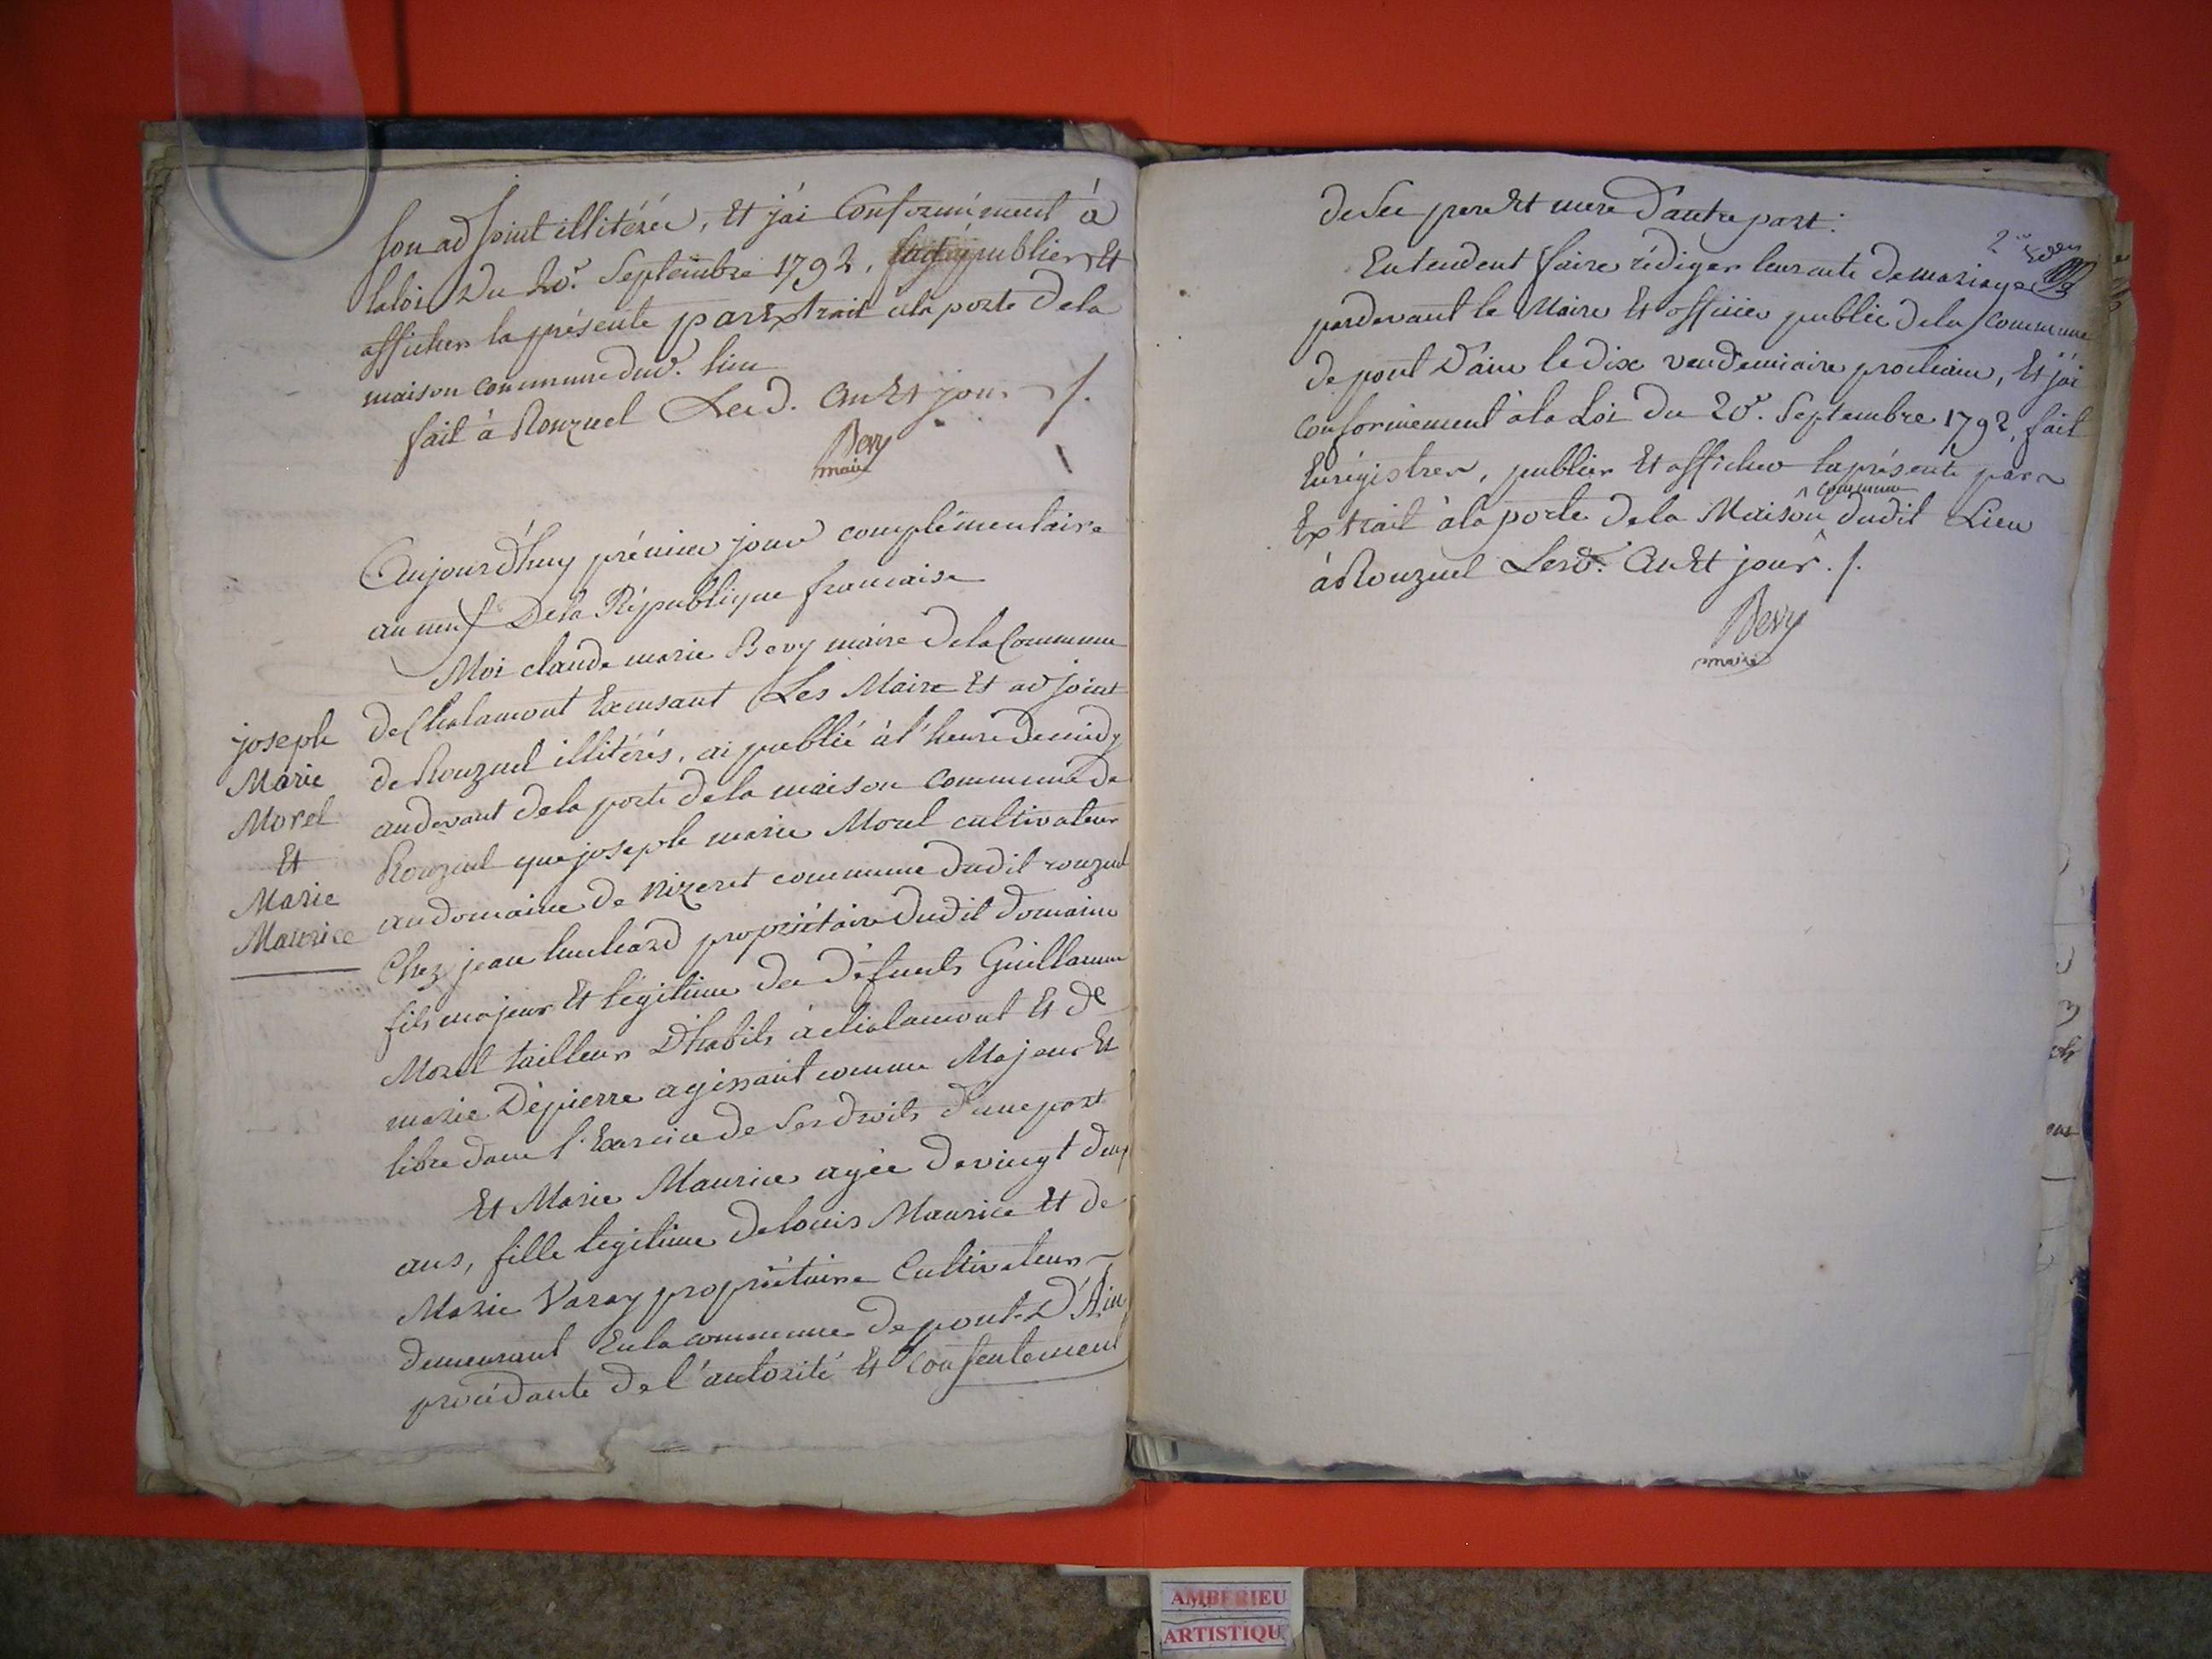 son adjoint illitérés, Et j'ai Conformément à
la loi Du 20e. Septembre 1792, publier Et
afficher la présente par Extrait à la porte De la
maison commune dud. lieu
fait à Ronzuel Lesd. An Et jour ./.
Bevy
maire
Aujourd'huy prémier jour complémentaire
an neuf De la République francaise
Moi claude marie Bevy maire De la Commune
De Chalamont Excusant Les Maire Et adjoint
de Ronzuel illitérés, ai publié à l'heure De midy
au devant De la porte De la maison Commune De
Ronzuel que joseph marie Morel cultivateur
au domaine De Nizeret commune Dudit ronzuel
Chez jean huchard propriétaire Dudit Domaine
fils majeur Et légitime De Défunts Guillaume
Morel tailleur D'habits à chalamont Et De
marie Dépierre agissant comme Majeur Et
libre Dans l'Exercice De Ses Droits D'une part
Et Marie Maurice agée De vingt Deux
ans, fille légitime De louis Maurice Et De
Marie Varay propriétaire Cultivateur
Demeurant En la commune De pont-D'Ain
procédante De l'autorité Et Consentement
joseph
Marie
Morel
Et
Marie
Maurice
De Ses pere Et mere D'autre part:
Entendent faire rédiger leur acte De mariage
pardevant le Maire Et officier public De la Commune
De pont D'ain le Dix vendemiaire prochain, Et j'ai
Conformément à la Loi Du 20e. Septembre 1792, fait
Enrégistrer, publier Et afficher la présente par
Extrait à la porte De la Maison commune Dudit Lieu
à Ronzuel Lesd. An Et jour ./.
Bevy
maire
AMBERIEU
ARTISTIQU